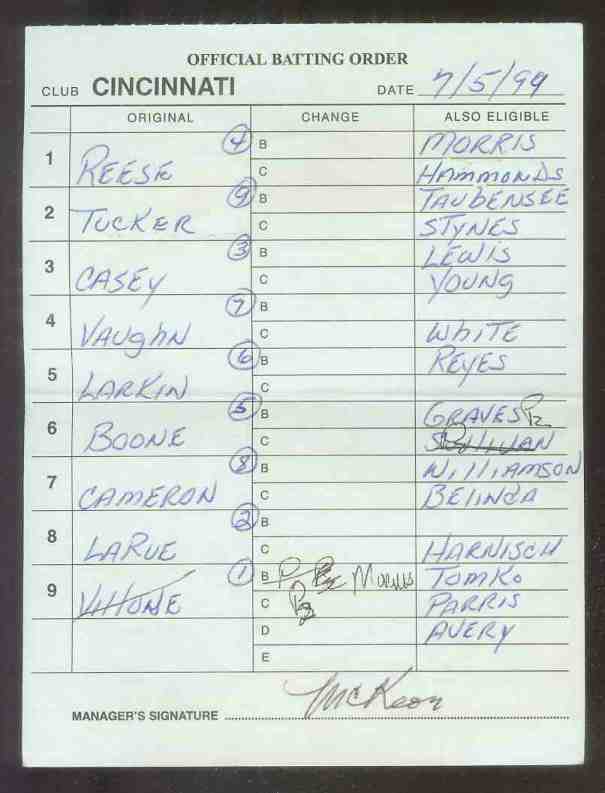 OFFICIAL BATTING ORDER
CLUB CINCINNATI DATE 7/5/99
ORIGINAL CHANGE ALSO ELIGIBLE
1 REESE 4 B MORRIS
C HAMMONDS
2 TUCKER 9 B TAUBENSEE
C STYNES
3 CASEY 3 B LEWIS
C YOUNG
4 VAUGHN 7 B
C WHITE
5 LARKIN 6 B REYES
C
6 BOONE 5 B GRAVES
C SULLIVAN
7 CAMERON 8 B WILLIAMSON
C BELINDA
8 LARUE 2 B
C HARNISCH
9 VILLONE 1 B MORRIS TOMKO
C PARRIS
D AVERY
E
MANAGER'S SIGNATURE McKeon